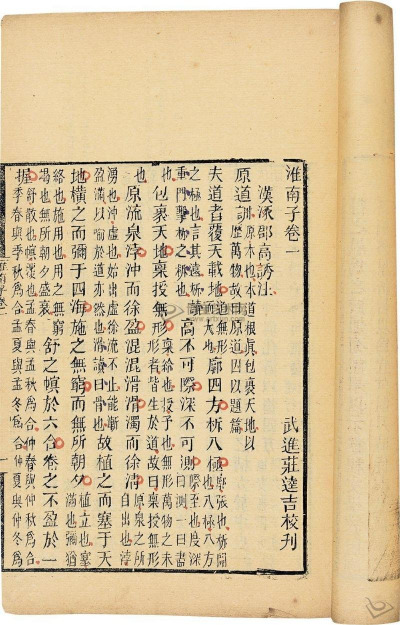 淮南子卷一 武進莊逵吉校刊
漢涿郡高誘注
原道訓 原本也本道根真包裹天地以歷萬物故曰原道因以題篇
夫道者覆天載地 道無形而大也 廓四方柝八極 廓張也柝開也八極八方
之極也言其遠柝讀重門擊柝之柝也 高不可際深不可測 際至也度深曰測一曰盡
也 包裹天地稟授無形 稟給也授予也無形萬物之未形者皆生於道故曰稟授無形
也 原流泉浡沖而徐盈混混滑滑濁而徐清 原泉之所自出也浡
湧也沖虛也始出虛徐流不止能漸盈滿以喻於道亦然也滑讀曰骨也 故植之而塞于天
地橫之而彌于四海施之無窮而無所朝夕 植立也塞滿也彌猶
絡也施用也用之無窮竭也無所朝夕盛衰 舒之幎於六合卷之不盈於一
握 舒散也幎覆也孟春與孟秋為合仲春與仲秋為合季春與季秋為合孟夏與孟冬為合仲夏與仲冬為合